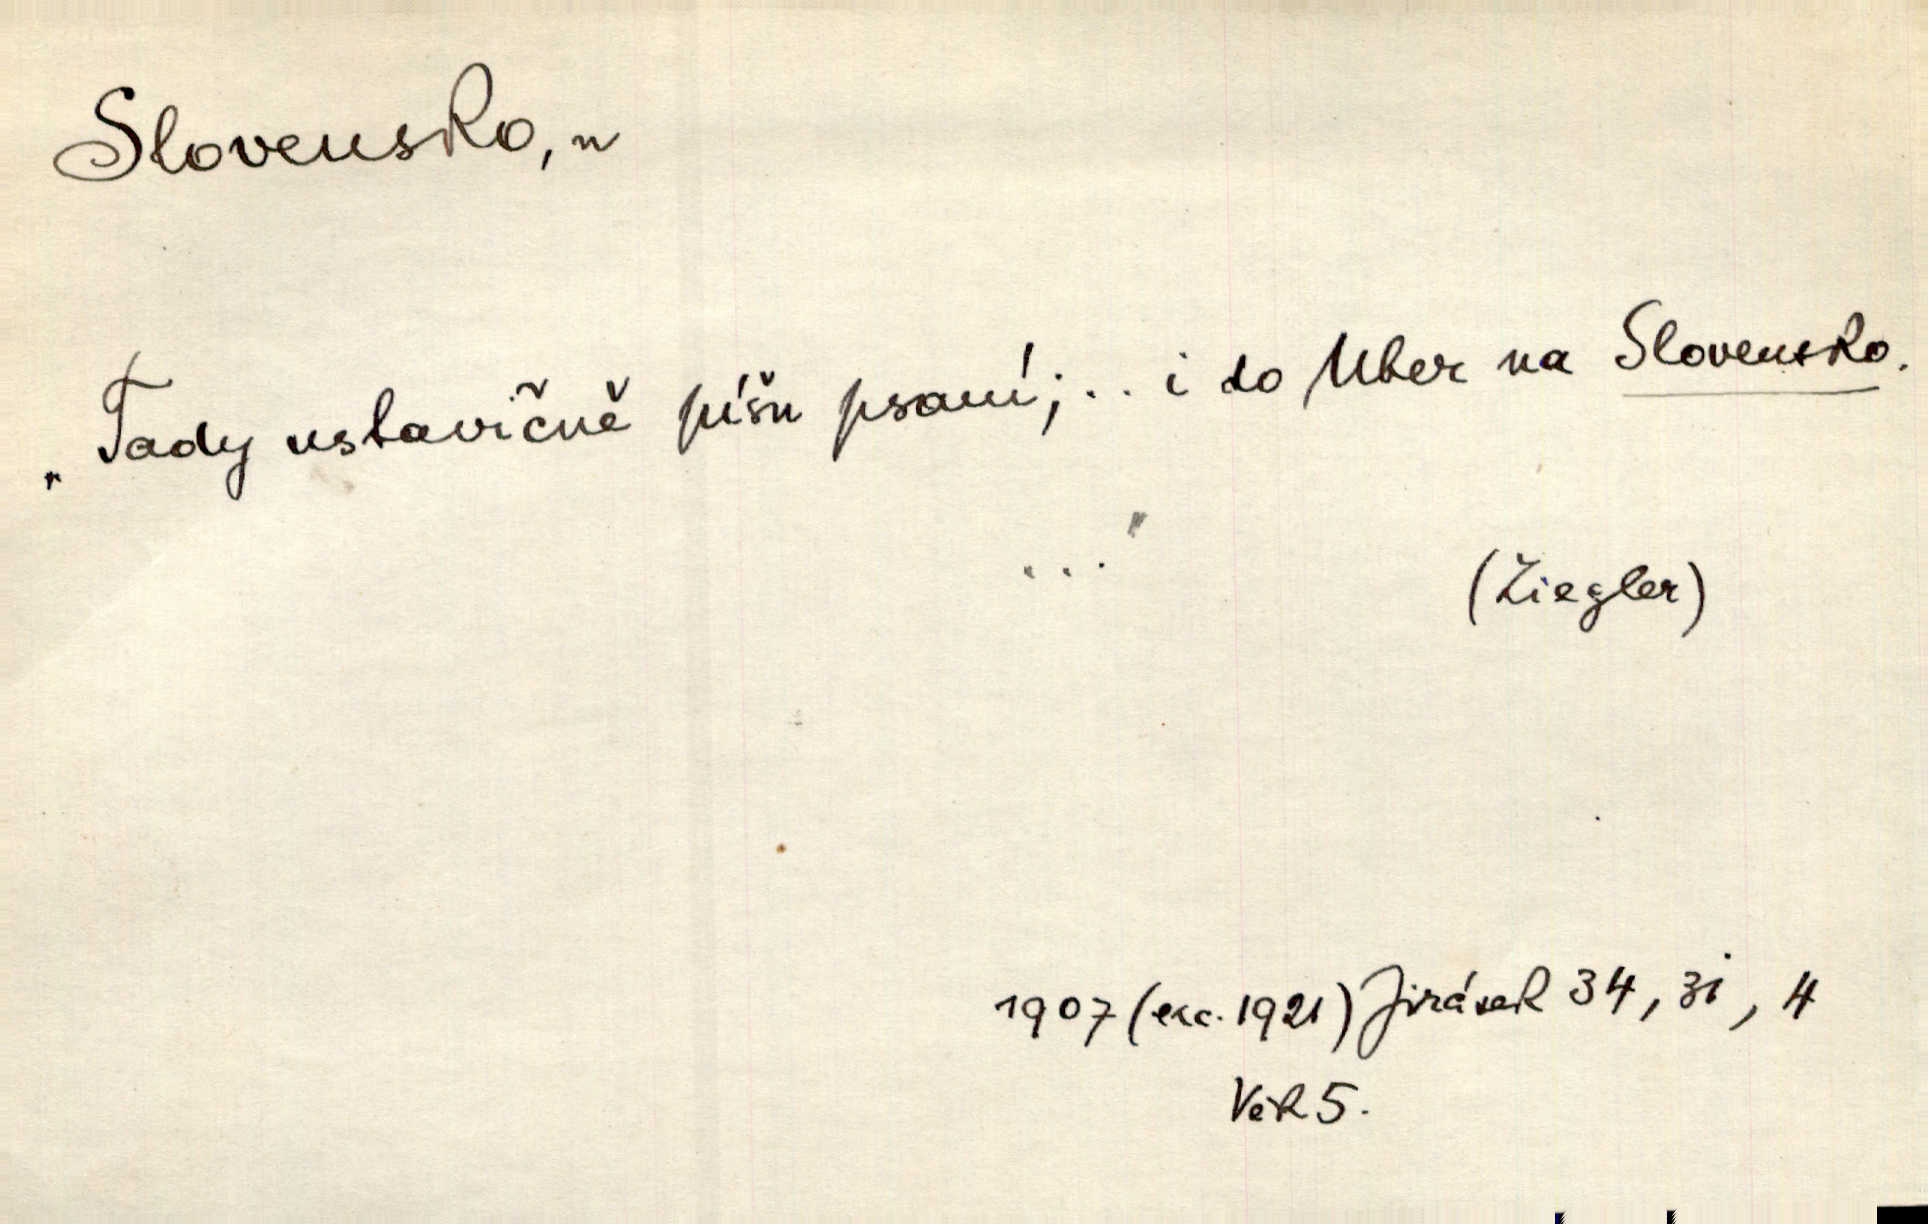 Slovensko, n
„Tady ustavičně píšu psaní; .. i do Uher na Slovensko.
..."
(Ziegler)
1907 (exc. 1921) Jirásek 34, 31, 4
Věk 5.